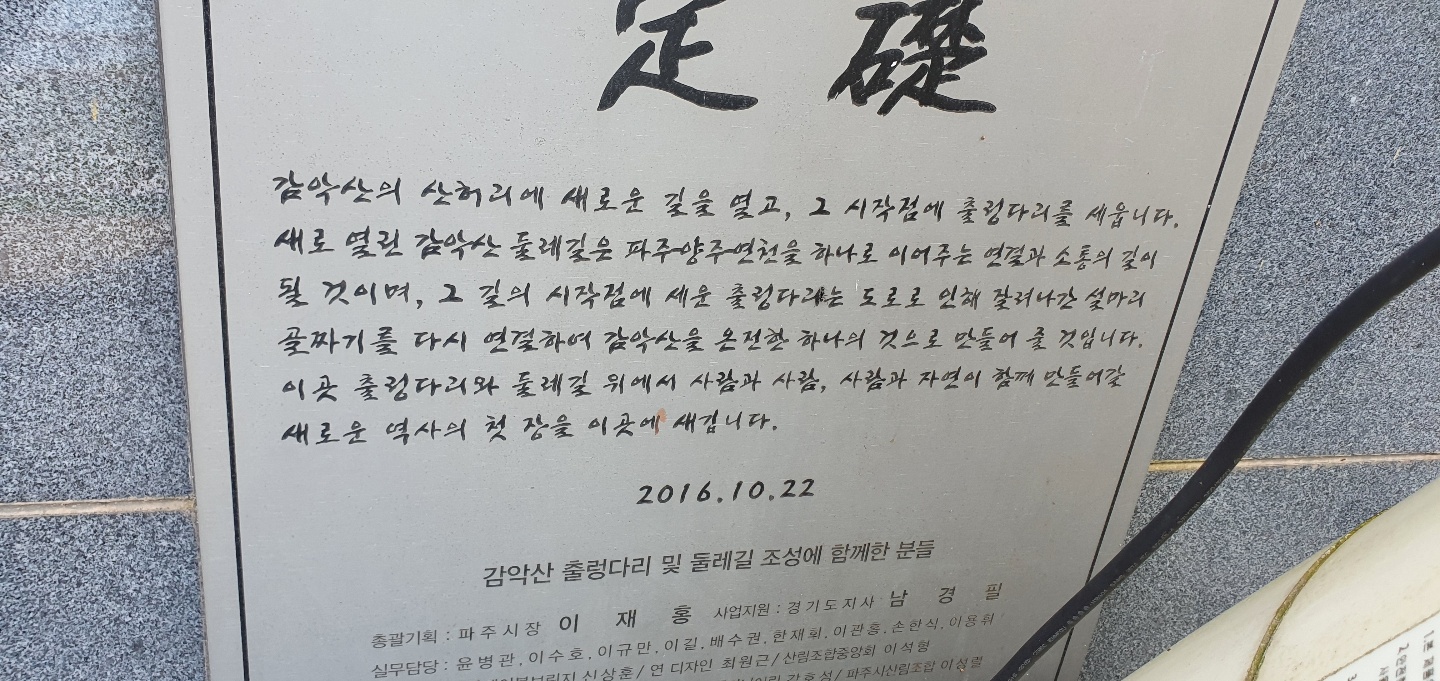 定 礎
감악산의 산허리에 새로운 길을 열고, 그 시작점에 출렁다리를 세웁니다.
새로 열린 감악산 둘레길은 파주·양주·연천을 하나로 이어주는 연결과 소통의 길이
될 것이며, 그 길의 시작점에 세운 출렁다리는 도로로 인해 잘려나간 설마리
골짜기를 다시 연결하여 감악산을 온전한 하나의 것으로 만들어 줄 것입니다.
이곳 출렁다리와 둘레길 위에서 사람과 사람, 사람과 자연이 함께 만들어갈
새로운 역사의 첫 장을 이곳에 새깁니다.
2016.10.22
감악산 출렁다리 및 둘레길 조성에 함께한 분들
총괄기획 : 파주시장 이 재 홍 사업지원 : 경기도지사 남 경 필
실무담당 : 윤병관, 이수호, 이규만, 이길, 배수권, 한재희, 이관흥, 손한식, 이용휘
신상훈 / 연 디자인 최원근 / 산림조합중앙회 이석형
강호성 / 파주시산림조합 이성렬